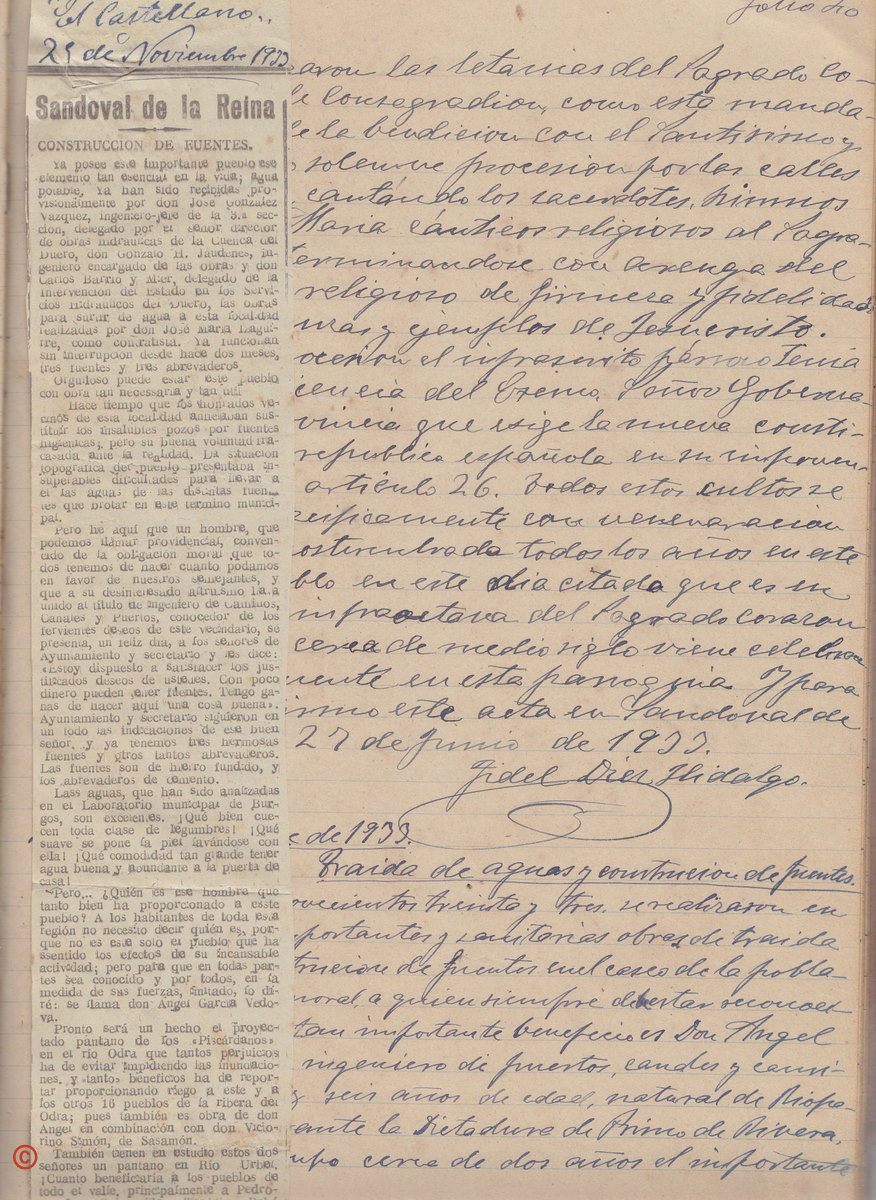 El Castellano..
25 de Noviembre 1933
Sandoval de la Reina
CONSTRUCCION DE FUENTES.
Ya posee este importante pueblo ese
elemento tan esencial en la vida; agua
potable. Ya han sido recibidas pro-
visionalmente por don José González
Vázquez, ingeniero-jefe de la 3.ª sec-
ción, delegado por el señor director
de obras hidráulicas de la Cuenca del
Duero, don Gonzalo H. Jaudenes, in-
geniero encargado de las obras y don
Carlos Barrio y Mier, delegado de la
Intervención del Estado en los Servi-
cios Hidráulicos del Duero, las obras
para surtir de agua a esta localidad
realizadas por don José María Lagui-
rre, como contratista. Ya funcionan
sin interrupción desde hace dos meses,
tres fuentes y tres abrevaderos.
Orgulloso puede estar este pueblo
con obra tan necesaria y tan util
Hace tiempo que los honrados ve-
cinos de esta localidad anhelaban sus-
tituir los insalubles pozos por fuentes
higiénicas; pero su buena voluntad fra-
casada ante la realidad. La situación
topográfica del pueblo presentaba in-
superables dificultades para llevar a
él las aguas de las distintas fuen-
tes que brotan en este término munici-
pal.
Pero he aquí que un hombre, que
podemos llamar providencial, conven-
cido de la obligación moral que to-
dos tenemos de hacer cuanto podamos
en favor de nuestros semejantes, y
que a su desinteresado altruismo
unido al título de Ingeniero de Caminos,
Canales y Puertos, conocedor de los
fervientes deseos de este vecindario, se
presenta, un feliz día, a los señores de
Ayuntamiento y secretario y les dice:
«Estoy dispuesto a satisfacer los jus-
tificados deseos de ustedes. Con poco
dinero pueden tener fuentes. Tengo ga-
nas de hacer aquí una cosa buena».
Ayuntamiento y secretario siguieron en
un todo las indicaciones de ese buen
señor, y ya tenemos tres hermosas
fuentes y otros tantos abrevaderos.
Las fuentes son de hierro fundido, y
los abrevaderos de cemento.
Lass aguas, que han sido analizadas
en el Laboratorio municipal de Bur-
gos, son excelentes. ¡Qué bien cue-
cen toda clase de legumbres! ¡Qué
suave se pone la piel lavándose con
ella! ¡Qué comodidad tan grande tener
agua buena y abundante a la puerta de
casa!
Pero,.. ¿Quién es ese hombre que
tanto bien ha proporcionado a esste
pueblo? A los habitantes de toda esta
región no necesito decir quién es, por-
que no es este solo el pueblo que ha
ssentido los efectos de su incansable
actividad; pero para que en todas par-
tes sea conocido y por todos, en la
medida de sus fuerzas, imitado, lo di-
ré: se llama don Angel García Vedo-
ya.
Pronto será un hecho el proyec-
tado pantano de los «Piscárdanos»
en el río Odra que tantos perjuicos
ha de evitar impidiendo las inundacio-
nes, y tantos beneficos ha de repor-
tar proporcionando riego a este y a
los otros 16 pueblos de la ribera del
Odra; pues también es obra de don
Angel en combinación con don Victo-
rino Simón, de Sasamón.
También tienen en estudio estos dos
señores un pantano en Río Urbel.
¡Cuanto beneficiaría a los pueblos de
todo el valle, principalmente a Pedro-
folio 40
aron las letanias del Sagrado Co-
de Consagradion, como esta manda-
de la bendicion con el Santisimo y
solemne procesion por las calles
cantando los sacerdotes, himnos
Maria cánticos religiosos al Sagra-
terminandose con arenga del
religioso de firmeza y fidelidad
nzas y ejemplos de Jesucristo.
ocesion el infrascrito párroco tenia
cencia del Excmo. Señor Goberna-
vincia que exige la nueva consti-
republica española en su
articulo 26. Todos estos cultos se
cificamente con veneracion
ostumbrada todos los años en este
blo en este dia citado que es en
infraoctava del Sagrado corazon
cerca de medio siglo viene celebran
mente en esta parroquia. Y para
irmo este acta en Sandoval de
27 de Junio de 1933.
Fidel Diez Hidalgo.
e de 1933.
Traida de aguas y construcion de fuentes.
ovecientos treinta y tres. se realizaron en
portantes y sanitarias obras de traida
trucion de fuentes en el casco de la pobla
moral, a quien siempre debestar reconoci
tan importante beneficio es Don Angel
ingeniero de puertos, canales y cami-
y seis años de edad, natural de Riopa-
ante la Dictadura de Primo de Rivera,
upo cerca de dos años el importante
©